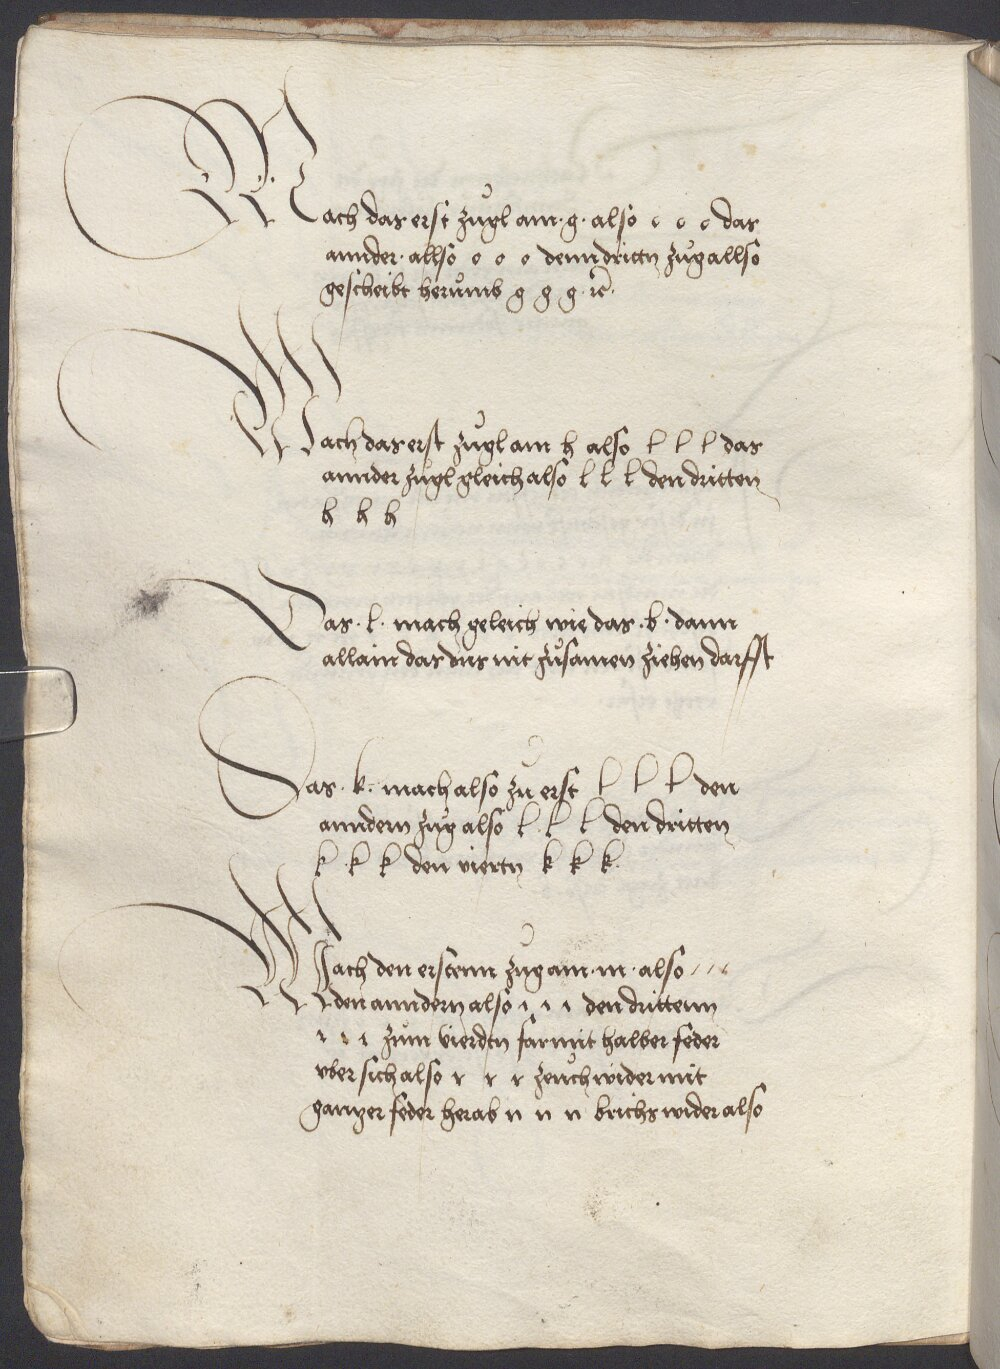 Mach das erst zugl am · g · also c c c das
annder · allso o o o denn drittn zug allso
gescheibt herumb g g g · rc̄ ·
Mach das erst zugl am h also l l l das
annder zugl gleich also l l l den dritten
h h h
Das · l · mach geleich wie das · b · dann
allain das dus nit zusamen ziehen darffst
Das · k · mach also zu erst l l l den
anndern zug also l l l den dritten
k k k den viertn k k k
Mach den erstenn zug am · m · also / / /
den anndern also ı ı ı den drittenn
ı ı ı zum vierdtn far mit halber feder
vbersich also r r r zeuch wider mit
gantzer feder herab n n n brichs wider also